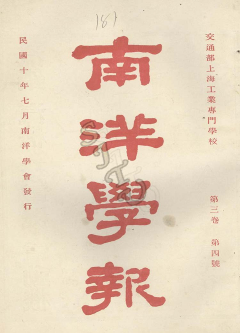 交通部上海工業專門學校
第三卷 第四號
南洋學報
民國十年七月南洋學會發行